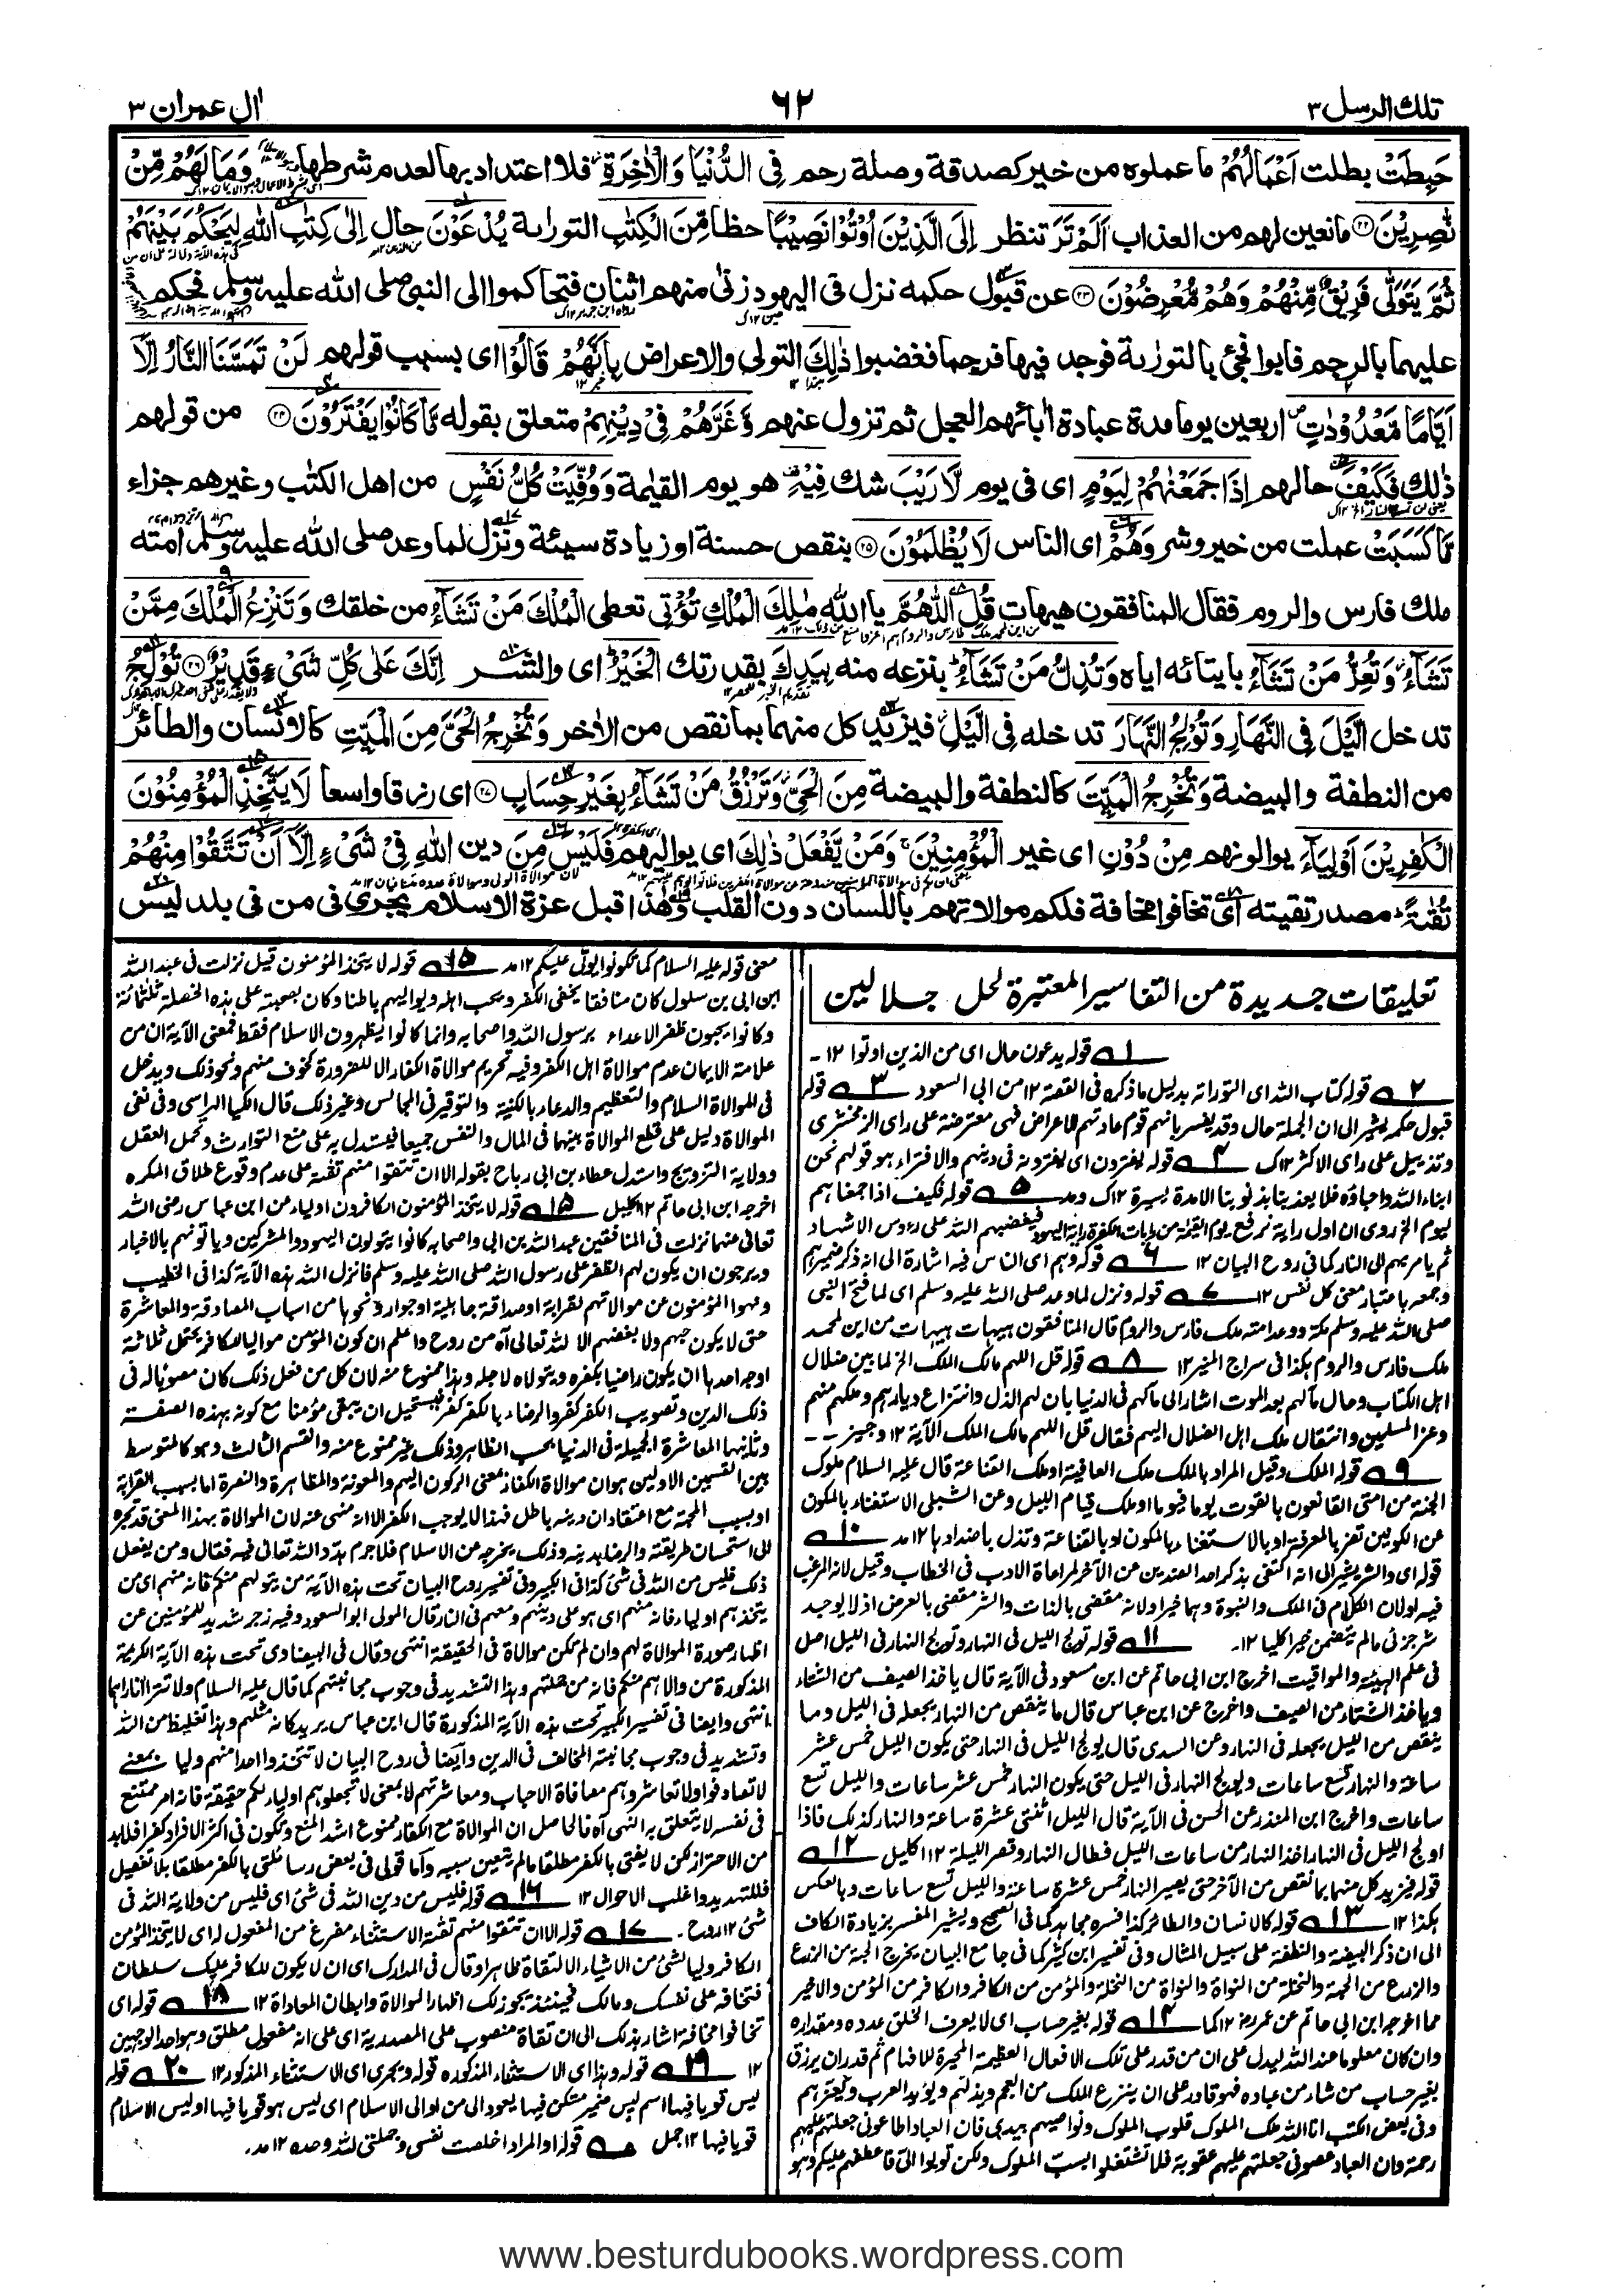 تلك الرسل ٣
٦٢
اٰل عمران ٣
حَبِطَتْ بطلت اَعْمَالُهُمْ ما عملوه من خير كصدقة وصلة رحم فِى الدُّنْيَا وَالْاٰخِرَةِ فلا اعتداد بها لعدم شرطها وَمَا لَهُمْ مِّنْ
نّٰصِرِيْنَ ﴿٢٢﴾ مانعين لهم من العذاب اَلَمْ تَرَ تنظر اِلَى الَّذِيْنَ اُوْتُوْا نَصِيْبًا حظا مِّنَ الْكِتٰبِ التورىة يُدْعَوْنَ حال اِلٰى كِتٰبِ اللهِ لِيَحْكُمَ بَيْنَهُمْ
ثُمَّ يَتَوَلّٰى فَرِيْقٌ مِّنْهُمْ وَهُمْ مُّعْرِضُوْنَ ﴿٢٣﴾ عن قبول حكمه نزل فى اليهود زنى منهم اثنان فتحاكموا الى النبى صلى الله عليه وسلم فحكم
عليهما بالرجم فابوا فجئ بالتورٰىة فوجد فيها فرجما فغضبوا ذٰلِكَ التولى والاعراض بِاَنَّهُمْ قَالُوْا اى بسبب قولهم لَنْ تَمَسَّنَا النَّارُ اِلَّآ
اَيَّامًا مَّعْدُوْدٰتٍ اربعين يوما مدة عبادة اٰبائهم العجل ثم تزول عنهم وَغَرَّهُمْ فِىْ دِيْنِهِمْ متعلق بقوله مَّا كَانُوْا يَفْتَرُوْنَ ﴿٢٤﴾ من قولهم
ذٰلك فَكَيْفَ حالهم اِذَا جَمَعْنٰهُمْ لِيَوْمٍ اى فى يوم لَّا رَيْبَ شك فِيْهِ هو يوم القيٰمة وَوُفِّيَتْ كُلُّ نَفْسٍ من اهل الكتٰب وغيرهم جزاء
مَّا كَسَبَتْ عملت من خير وشر وَهُمْ اى الناس لَا يُظْلَمُوْنَ ﴿٢٥﴾ بنقص حسنة او زيادة سيئة ونزل لما وعد صلى الله عليه وسلم امته
ملك فارس والروم فقال المنافقون هيهات قُلِ اللّٰهُمَّ يا الله مٰلِكَ الْمُلْكِ تُؤْتِى تعطى الْمُلْكَ مَنْ تَشَآءُ من خلقك وَتَنْزِعُ الْمُلْكَ مِمَّنْ
تَشَآءُ وَتُعِزُّ مَنْ تَشَآءُ بايتائه اياه وَتُذِلُّ مَنْ تَشَآءُ بنزعه منه بِيَدِكَ بقدرتك الْخَيْرُ اى والشر اِنَّكَ عَلٰى كُلِّ شَىْءٍ قَدِيْرٌ ﴿٢٦﴾ تُوْلِجُ
تدخل الَّيْلَ فِى النَّهَارِ وَتُوْلِجُ النَّهَارَ تدخله فِى الَّيْلِ فيزيد كل منهما بما نقص من الاٰخر وَتُخْرِجُ الْحَىَّ مِنَ الْمَيِّتِ كالانسان والطائر
من النطفة والبيضة وَتُخْرِجُ الْمَيِّتَ كالنطفة والبيضة مِنَ الْحَىِّ وَتَرْزُقُ مَنْ تَشَآءُ بِغَيْرِ حِسَابٍ ﴿٢٧﴾ اى رزقا واسعا لَا يَتَّخِذِ الْمُؤْمِنُوْنَ
الْكٰفِرِيْنَ اَوْلِيَآءَ يوالونهم مِنْ دُوْنِ اى غير الْمُؤْمِنِيْنَ وَمَنْ يَّفْعَلْ ذٰلِكَ اى يواليهم فَلَيْسَ مِنَ دين اللهِ فِىْ شَىْءٍ اِلَّآ اَنْ تَتَّقُوْا مِنْهُمْ
تُقٰىةً مصدر تقيته اى تخافوا مخافة فلكم موالاتهم باللسان دون القلب وهذا قبل عزة الاسلام ويجرى فى من فى بلد ليس
تعليقات جديدة من التفاسير المعتبرة لحل جلالين
١ قوله يدعون حال اى من الذين اوتوا ١٢
٢ قوله كتاب الله اى التوراة بدليل ما ذكره فى القصة ١٢ من ابى السعود ٣ قوله
قبول حكمه يشير الى ان الجملة حال وقد يفسر بانهم قوم عادتهم الاعراض فهى معترضة على راى الزمخشرى
وتذييل على راى الاكثر ١٢ك ٤ قوله يفترون اى يفترونه فى دينهم والافتراء هو قولهم نحن
ابناء الله واحباؤه فلا يعذبنا بذنوبنا الا مدة يسيرة ١٢ك ومد ٥ قوله فكيف اذا جمعناهم
ليوم الخ روى ان اول راية ترفع يوم القيمة من رايات الكفرة راية اليهود فيفضحهم الله على رءوس الاشهاد
ثم يامر بهم الى النار كما فى روح البيان ١٢ ٦ قوله وهم اى الناس فيه اشارة الى انه ذكر ضميرهم
وجمعه باعتبار معنى كل نفس ١٢ ٧ قوله ونزل لما وعد صلى الله عليه وسلم اى لما فتح النبى
صلى الله عليه وسلم مكة ووعد امته ملك فارس والروم قال المنافقون هيهات هيهات من اين لمحمد
ملك فارس والروم هكذا فى سراج المنير ١٢ ٨ قوله قل اللهم مالك الملك الخ لما بين ضلال
اهل الكتاب ومال مآلهم بعد الموت اشار الى مآلهم فى الدنيا بان لهم الذل وانتزاع ديارهم وملكهم منهم
وعز المسلمين وانتقال ملك اهل الضلال اليهم فقال قل اللهم مالك الملك الآية ١٢ وجيز
٩ قوله الملك وقيل المراد بالملك ملك العافية او ملك القناعة قال عليه السلام ملوك
الجنة من امتى القانعون بالقوت يوما فيوما او ملك قيام الليل وعن الشبلى الاستغناء بالمكون
عن الكونين تعز بالمعرفة او بالاستغناء بالمكون او بالقناعة وتذل باضدادها ١٢ مد ١٠
قوله اى والشر يشير الى انه اكتفى بذكر احد الضدين من الآخر لمراعاة الادب فى الخطاب وقيل لانه المرغب
فيه او لان الكلام فى الملك والنبوة وهما خير او لانه مقضى بالذات والشر مقضى بالعرض اذ لا يوجد
شر جزئى ما لم يتضمن خيرا كليا ١٢ ١١ قوله تولج الليل فى النهار وتولج النهار فى الليل اصل
فى علم الهيئة والمواقيت اخرج ابن ابى حاتم عن ابن مسعود فى الآية قال ياخذ الصيف من الشتاء
وياخذ الشتاء من الصيف واخرج عن ابن عباس قال ما ينقص من النهار يجعله فى الليل وما
ينقص من الليل يجعله فى النهار وعن السدى قال يولج الليل فى النهار حتى يكون الليل خمس عشر
ساعة والنهار تسع ساعات ويولج النهار فى الليل حتى يكون النهار خمس عشر ساعات والليل تسع
ساعات واخرج ابن المنذر عن الحسن فى الآية قال الليل اثنتى عشرة ساعة والنهار كذلك فاذا
اولج الليل فى النهار اخذ النهار من ساعات الليل فطال النهار وقصر الليلة ١٢ اكليل ١٢
قوله فيزيد كل منهما بما نقص من الآخر حتى يصير النهار خمس عشرة ساعة والليل تسع ساعات وبالعكس
هكذا ١٢ ١٣ قوله كالانسان والطائر كذا فسره مجاهد كما فى الصحيح ويشير المفسر بزيادة الكاف
الى ان ذكر البيضة والنطفة على سبيل المثال وفى تفسير ابن كثير كما فى جامع البيان يخرج الحبة من الزرع
والزرع من الحبة والنخلة من النواة والنواة من النخلة والمؤمن من الكافر والكافر من المؤمن والاخير
مما اخرجه ابن ابى حاتم عن عمر رض ١٢ كما ١٤ قوله بغير حساب اى لا يعرف الخلق عدده ومقداره
وان كان معلوما عند الله ليدل على ان من قدر على تلك الافعال العظيمة المحيرة للافهام ثم قدر ان يرزق
بغير حساب من شاء من عباده فهو قادر على ان ينزع الملك من العجم ويذلهم ويؤتيه العرب ويعزهم
وفى بعض الكتب انا الله ملك الملوك قلوب الملوك ونواصيهم بيدى فان العباد اطاعونى جعلتهم عليهم
رحمة وان العباد عصونى جعلتهم عليهم عقوبة فلا تشتغلوا بسب الملوك ولكن توبوا الى اعطفهم عليكم وهو
معنى قوله عليه السلام كما تكونوا يولى عليكم ١٢ مد ١٥ قوله لا يتخذ المؤمنون قيل نزلت فى عبد الله
ابن ابى بن سلول كان منافقا يخفى الكفر ويحب اهله ويواليهم باطنا وكان بصحبته على هذه الخصلة ثلثمائة
وكانوا يحبون ظفر الاعداء برسول الله واصحابه وانما كانوا يظهرون الاسلام فقط فمعنى الآية ان من
علامة الايمان عدم موالاة اهل الكفر وفيه تحريم موالاة الكفار الا للضرورة كخوف منهم ونحو ذلك ويدخل
فى الموالاة السلام والتعظيم والدعاء بالكنية والتوقير فى المجالس وغير ذلك قال الكيا الراسى وفى نفى
الموالاة دليل على قطع الموالاة بينهما فى المال والنفس جميعا فيستدل به على منع التوارث وتحمل العقل
وولاية التزويج واستدل عطاء بن ابى رباح بقوله الا ان تتقوا منهم تقة على عدم وقوع طلاق المكره
اخرجه ابن ابى حاتم ١٢ اكليل ١٥ قوله لا يتخذ المؤمنون الكافرون اولياء عن ابن عباس رضى الله
تعالى عنهما نزلت فى المنافقين عبد الله بن ابى واصحابه كانوا يتولون اليهود والمشركين وياتونهم بالاخبار
ويرجون ان يكون لهم الظفر على رسول الله صلى الله عليه وسلم فانزل الله هذه الآية كذا فى الخطيب
ونهوا المؤمنون عن موالاتهم لقرابة او صداقة جاهلية او جوار ونحوها من اسباب المصادقة والمعاشرة
حتى لا يكون حبهم ولا بغضهم الا لله تعالى آه من روح واعلم ان كون المؤمن مواليا للكافر يحتمل ثلاثة
اوجه احدها ان يكون راضيا بكفره ويتولاه لاجله وهذا ممنوع منه لان كل من فعل ذلك كان مصوبا له فى
ذلك الدين وتصويب الكفر كفر والرضاء بالكفر كفر فيستحيل ان يبقى مؤمنا مع كونه بهذه الصفة
وثانيها المعاشرة الجميلة فى الدنيا بحسب الظاهر وذلك غير ممنوع منه والقسم الثالث وهو كالمتوسط
بين القسمين الاولين هو ان موالاة الكفار بمعنى الركون اليهم والمعونة والمظاهرة والنصرة اما بسبب القرابة
او بسبب المحبة مع اعتقاد ان دينه باطل فهذا لا يوجب الكفر الا انه منهى عنه لان الموالاة بهذا المعنى قد تجره
الى استحسان طريقته والرضا بدينه وذلك يخرجه من الاسلام فلا جرم هدد الله تعالى فيه فقال ومن يفعل
ذلك فليس من الله فى شئ كذا فى الكبير وفى تفسير روح البيان تحت هذه الآية من يتولهم منكم فانه منهم اى من
يتخذهم اولياء فانه منهم اى هو على دينهم ومعهم فى النار قال المولى ابو السعود وفيه زجر شديد للمؤمنين عن
اظهار صورة الموالاة لهم وان لم تكن موالاة فى الحقيقة انتهى وقال فى البيضاوى تحت هذه الآية الكريمة
المذكورة من والاهم منكم فانه من جملتهم وهذا التشديد فى وجوب مجانبتهم كما قال عليه السلام ولا تتراآ ناراهما
انتهى وايضا فى تفسير الكبير تحت هذه الآية المذكورة قال ابن عباس يريد كانه مثلهم وهذا تغليظ من الله
وتشديد فى وجوب مجانبة المخالف فى الدين وايضا فى روح البيان لا تتخذوا احدا منهم وليا بمعنى
لا تصادقوا ولا تعاشروهم مصافاة الاحباب ومعاشرتهم لا بمعنى لا تجعلوهم اولياء لكم حقيقة فانه امر ممتنع
فى نفسه لا يتعلق به النهى آه فالحاصل ان الموالاة مع الكفار ممنوع اشد المنع وتكون فى اكثر الافراد كفرا فلابد
من الاحتراز لكن لا يفتى بالكفر مطلقا ما لم يتعين سببه واما قولى فى بعض رسائلى بالكفر مطلقا بلا تفصيل
فللتهديد واغلب الاحوال ١٢ ١٦ قوله فليس من دين الله فى شئ اى فليس من ولاية الله فى
شئ ١٢ روح ١٧ قوله الا ان تتقوا منهم تقة الاستثناء مفرغ من المفعول له اى لا يتخذ المؤمن
الكافر وليا لشئ من الاشياء الا لتقاة ظاهرا وقال فى المدارك اى ان لا يكون للكافر عليك سلطان
فتخافه على نفسك ومالك فحينئذ يجوز لك اظهار الموالاة وابطان المعاداة ١٢ ١٨ قوله اى
تخافوا مخافة اشار بذلك الى ان تقاة منصوب على المصدرية اى على انه مفعول مطلق وهو احد الوجهين
١٢ ١٩ قوله وهذا اى الاستثناء المذكوره قوله ويجرى اى الاستثناء المذكور ١٢ ٢٠ قوله
ليس قويا فيها اسم ليس ضمير مستكن فيها يعود الى من او الى الاسلام اى ليس هو قويا فيها او ليس الاسلام
قويا فيها ١٢ جمل قوله او المراد اخلصت نفسى وجملتى لله وحده ١٢ مد
www.besturdubooks.wordpress.com